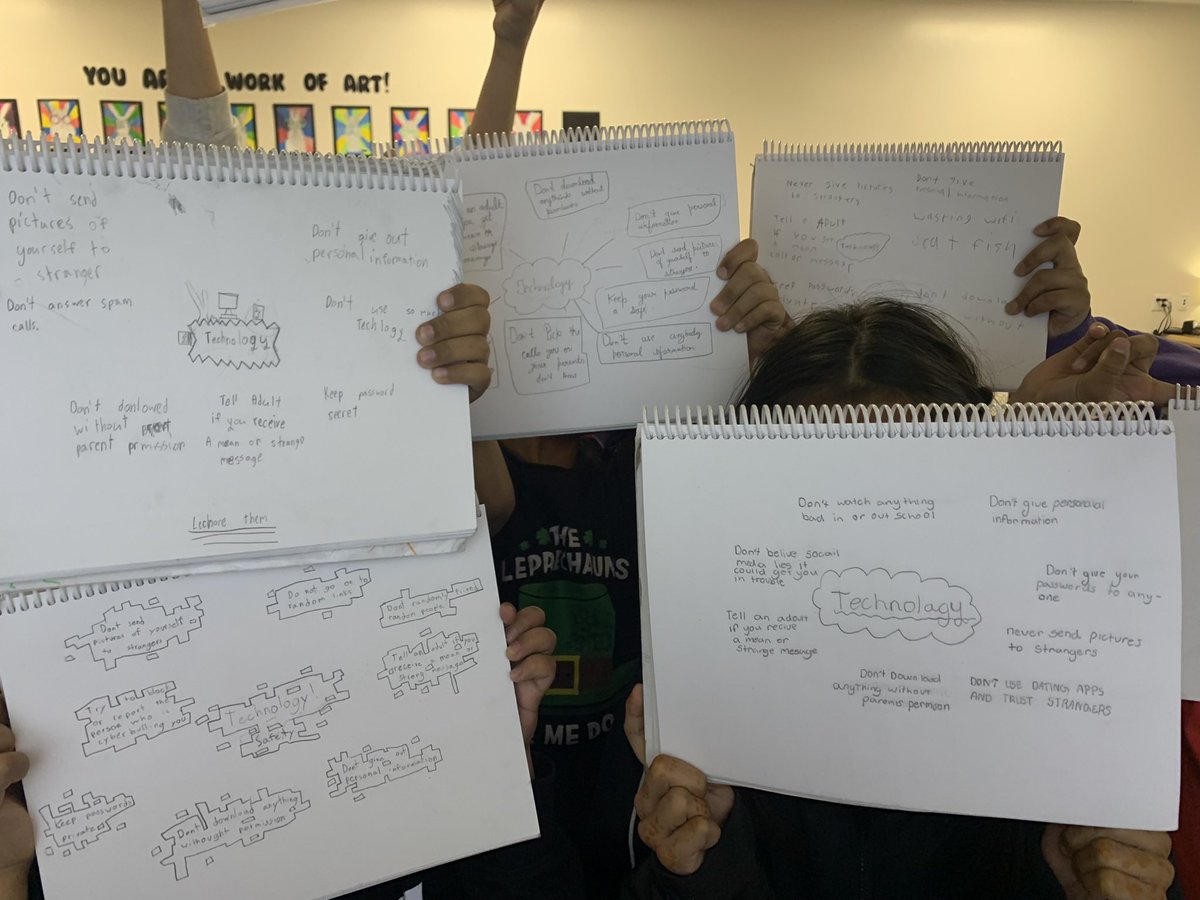 YOU WORK OF ART!
Don't send
pictures of
yourself to
stranger
Don't answer spam
calls.
Don't give out
personal information
Don't
use so much
Techlogy
Technology
Don't donlowed
without
parent prmission
Tell Adult
if you receive
A mean or strange
message
Keep password
secret
Lechore them
an adult
you get
Don't download
anything without
Don't give personal
information
Dont send picture
of yourself to
Technology
Keep your password
safe
Don't Pick the
calls you or
your parents
don't know
Don't use anybody
personal information
Never give pictures
to strangers
Don't give
personal information
Tell a ADULT
if you get
a mean
call or message
Technology
wasting wifi
cat fish
dont downlo
without
Dont send
pictures of yourself
to strangers
Do not go on to
random links
Dont randomly friend
random people
Tell an adult if you
receive a mean or
strong message
Try to block
or report the
person who is
cyber bulling you
Technology!
Safety
Dont give out
personal information
Keep passwords
private
Dont download anything
withought permission
THE
LEPRECHAUNS
ME DO
Don't watch anything
bad in or out school
Don't give personal
information
Don't belive socail
media lies it
could get you
in trouble
Technolagy
Don't give your
passwords to any-
one
Tell an adoult
if you recive
a mean or
strarge message
never send pictures
to strangers
Don't Download
anything without
parents permison
DON'T USE DATING APPS
AND TRUST STRANGERS